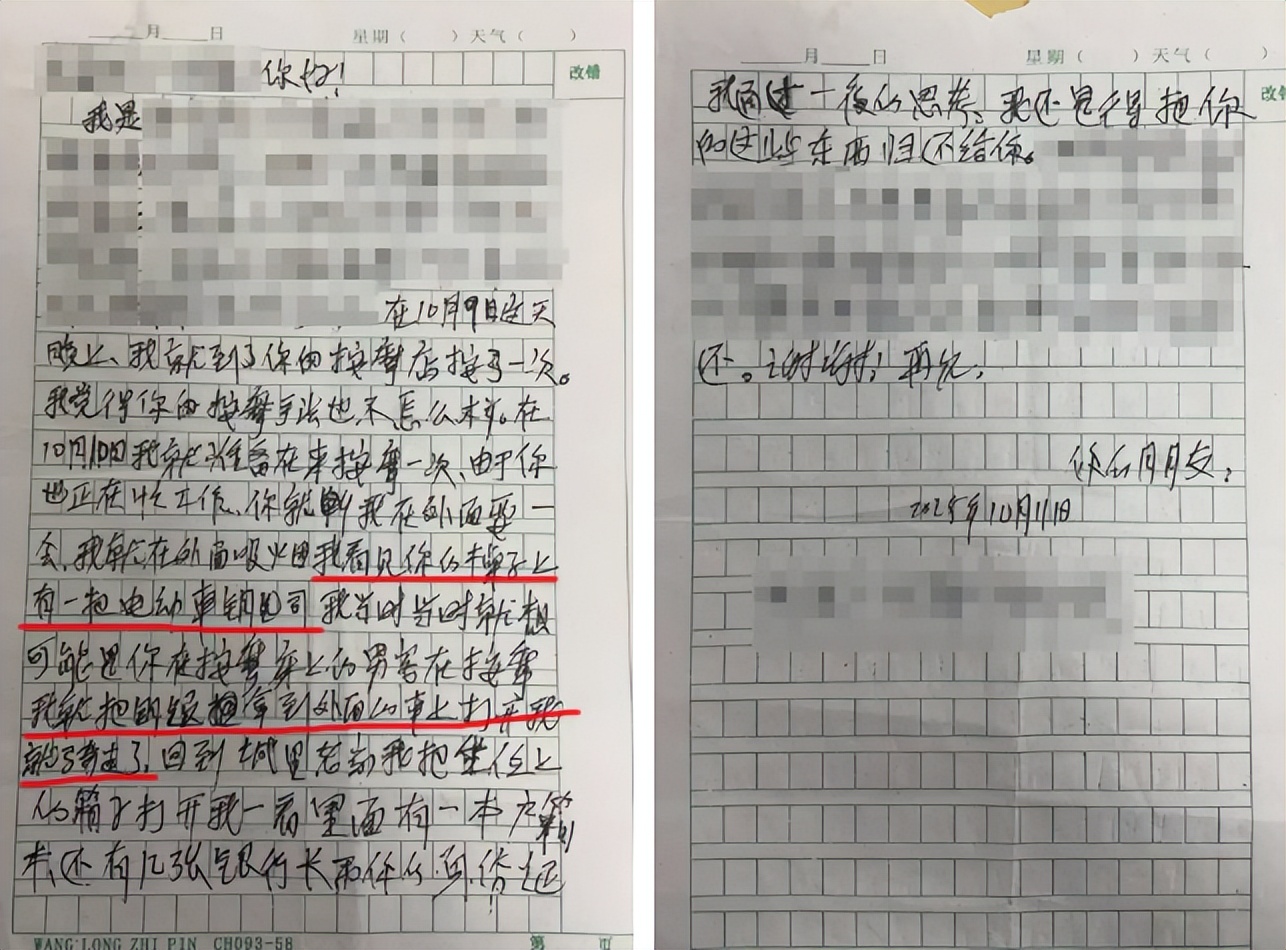 月 日 星期( )天气( )
你好! 改错
我是
在10月9日这天
晚上、我就到了你的按摩店按了一次。
我觉得你的按摩手法也不怎么样。在
10月10日我就准备在来按摩一次、由于你
也正在忙工作、你就叫我在外面耍一
会、我就在外面吸烟我看见你的桌子上
有一把电动车钥匙 我当时当时就想
可能是你在按摩床上的男客在按摩
我就把钥匙拿到外面的车上打开我
就骑走了、回到城里老家我把坐位上
的箱子打开我一看里面有一本户籍
本、还有几张银行卡
WANG LONG ZHI PIN CH093-58 第 页
月 日 星期( )天气( )
我通过一夜的思考、我还是得把你 改错
的这些东西归还给你。
还。谢谢; 再见;
你的朋友;
2025年10月11日